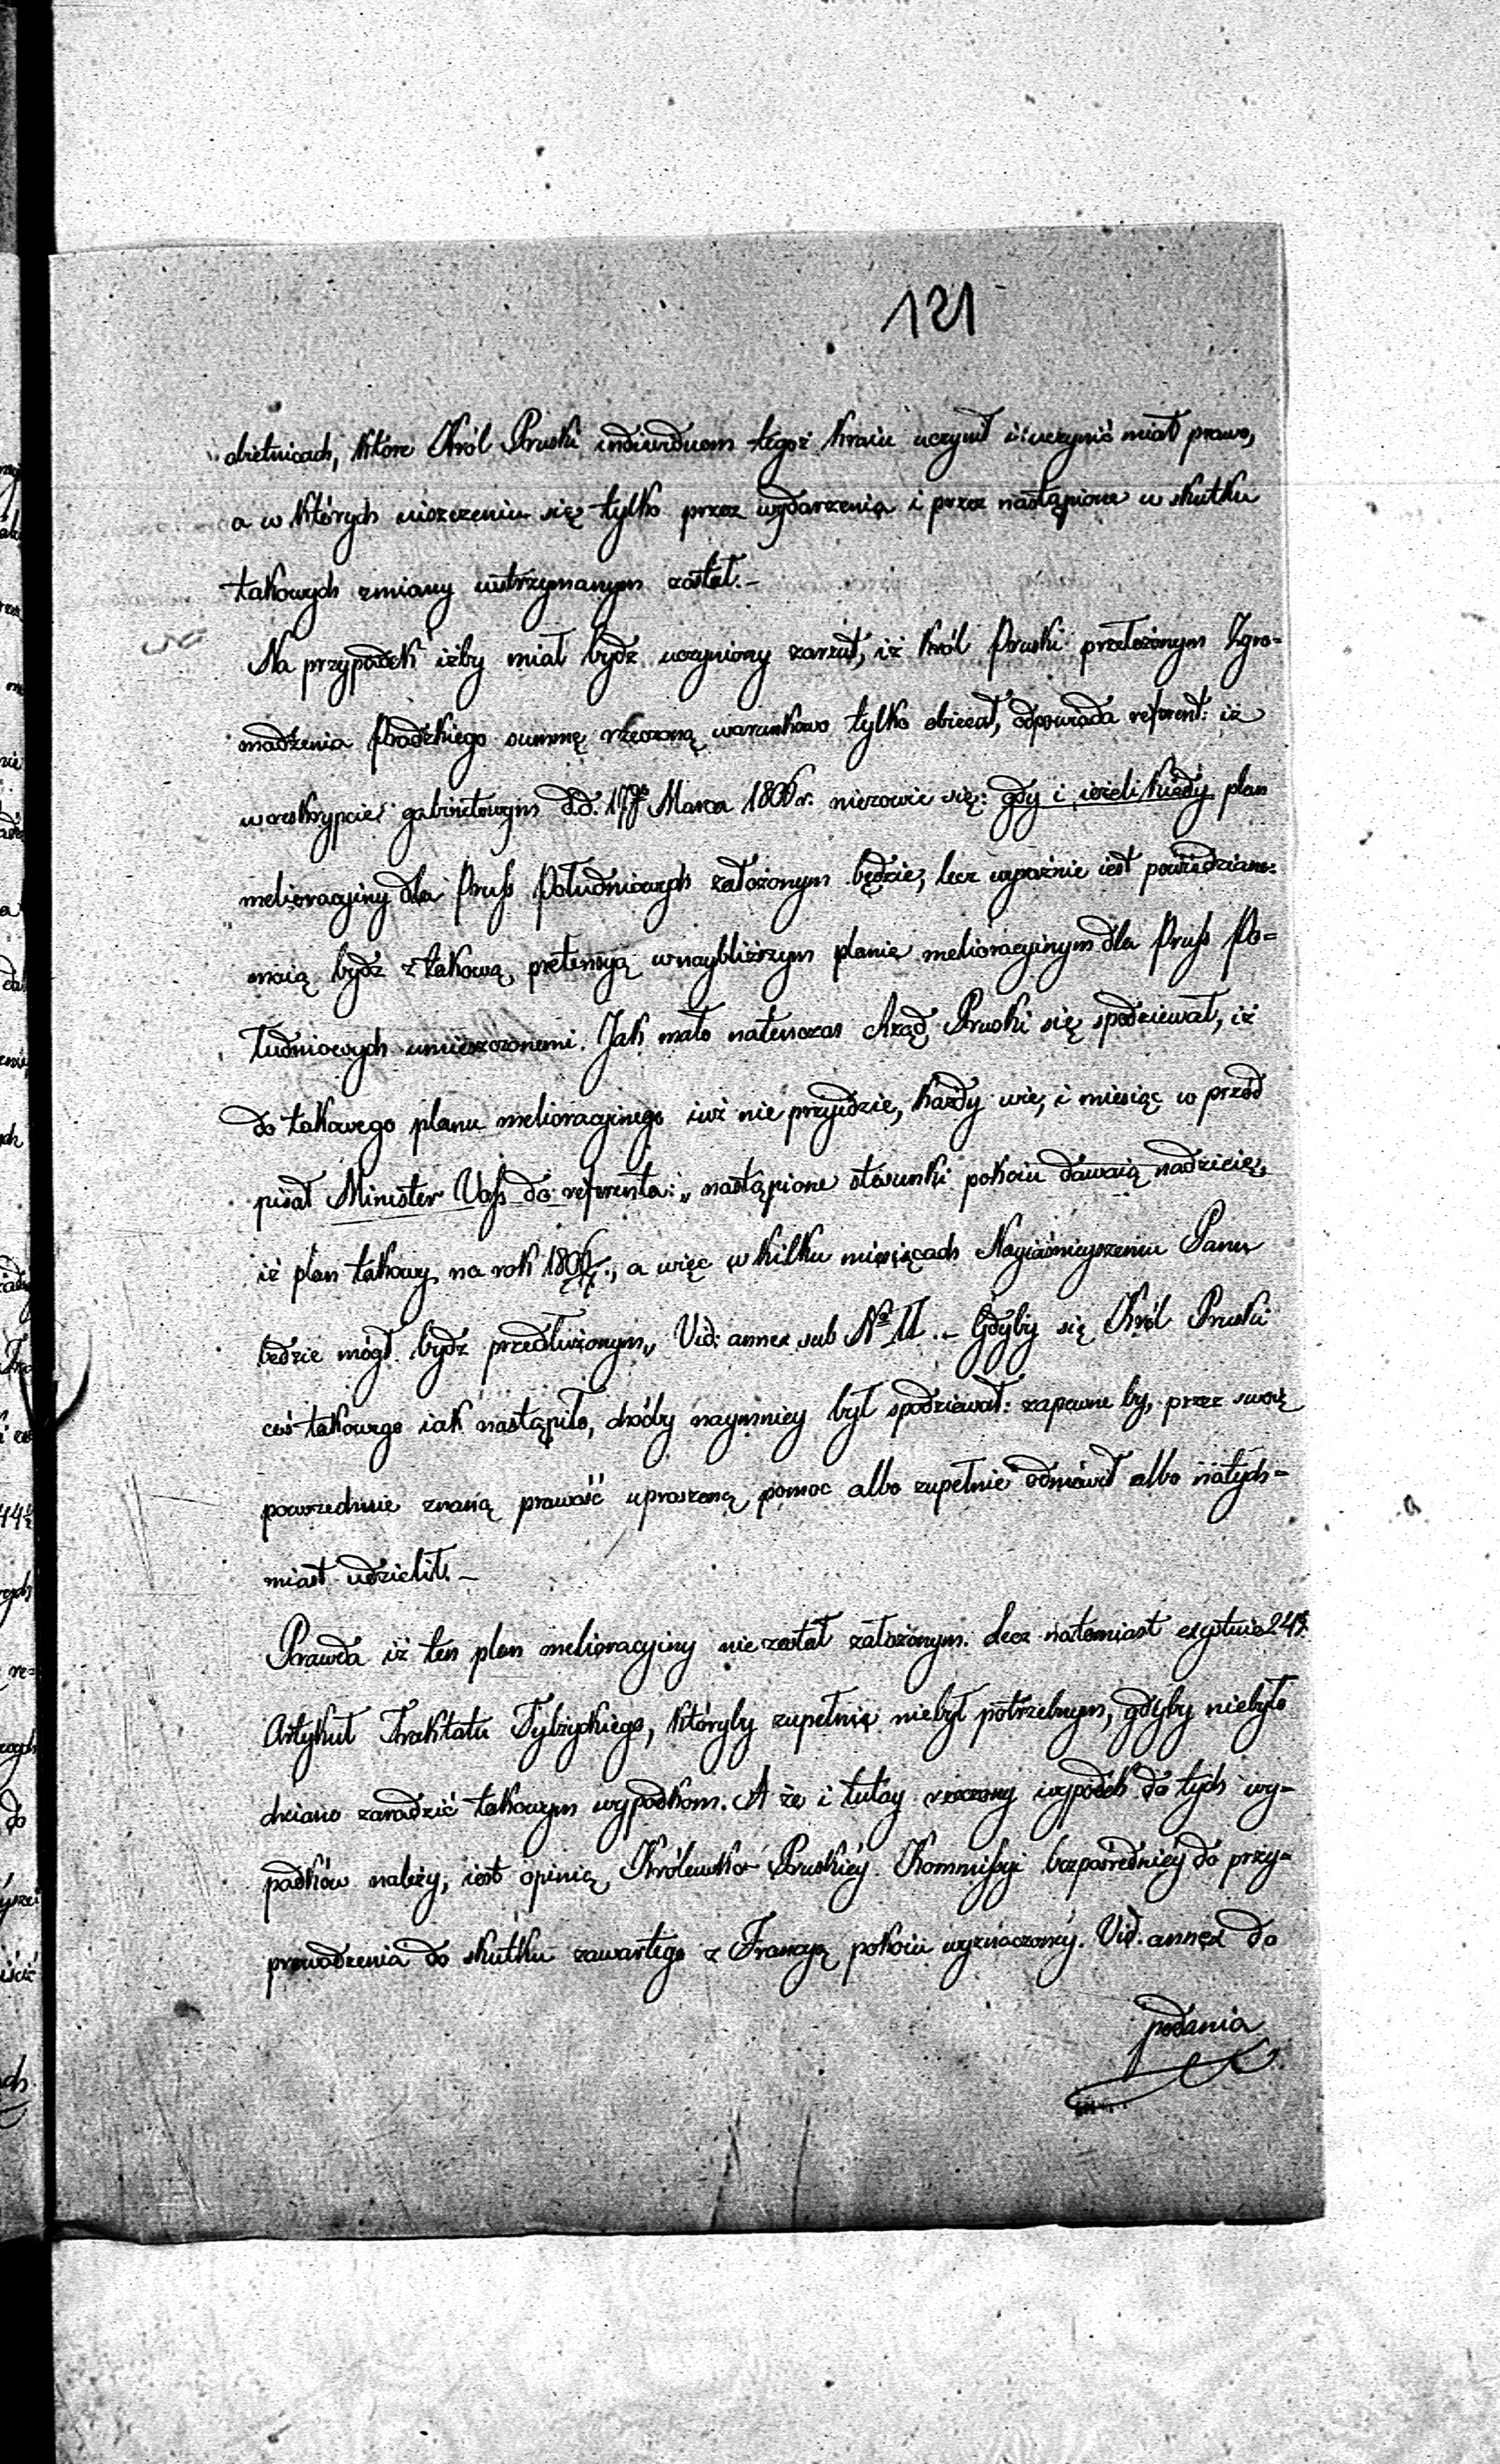 121
obietnicach, które Król Pruski indiwiduom tegoż kraiu uczynił i uczynić miał prawo,
a w których uiszczeniu się tylko przez wydarzenia i przez nastąpione w skutku
takowych zmiany wstrzymanym został.—
Na przypadek iżby miał bydź uczyniony zarzut, iż Król Pruski przełożonym Zgro=
madzenia summę rzeczoną warunkowo tylko obiecał, odpowiada referent: iż
w reskrypcie gabinetowym d.d. 17go Marca 1806 r. niezowie się: gdy i ieżeli kiedy plan
melioracyiny dla Pruss Południowych założonym będzie, lecz wyraźnie iest powiedziane:
maią bydź z takową pretensyą w naybliższym planie melioracyinym dla Pruss Po=
łudniowych umieszczonemi. Jak mało natenczas Rząd Pruski się spodziewał, iż
do takowego planu melioracyinego iuż nie przyidzie, każdy wie, i miesiąc w przód
pisał Minister Voss do referenta: „nastąpione stosunki pokoiu dawaią nadzieię,
iż plan takowy na rok 1806/7., a więc w kilku miesiącach Nayiaśnieyszemu Panu
będzie mógł bydź przedłużonym„ Vid. annex sub No II.— Gdyby się Król Pruski
coś takowego iak nastąpiło, choćby naymniey był spodziewał: zapewne by, przez swoią
powszechnie znaną prawość upraszaną pomoc albo zupełnie odmówił albo natych=
miast udzielił.—
Prawda iż ten plan melioracyiny nie został założonym. Lecz natomiast exystuie 24ty
Artykuł Traktatu Tylżyckiego, któryby zupełnie niebył potrzebnym, gdyby niebyło
chciano zaradzić takowym wypadkom. A że i tutay rzeczony wypadek do tych wy=
padków należy, iest opinią Królewsko Pruskiéy Kommissyi bezpośredniey do przy=
prowadzenia do skutku zawartego z Francyą pokoiu wyznaczonéy. Vid. annex do
podania